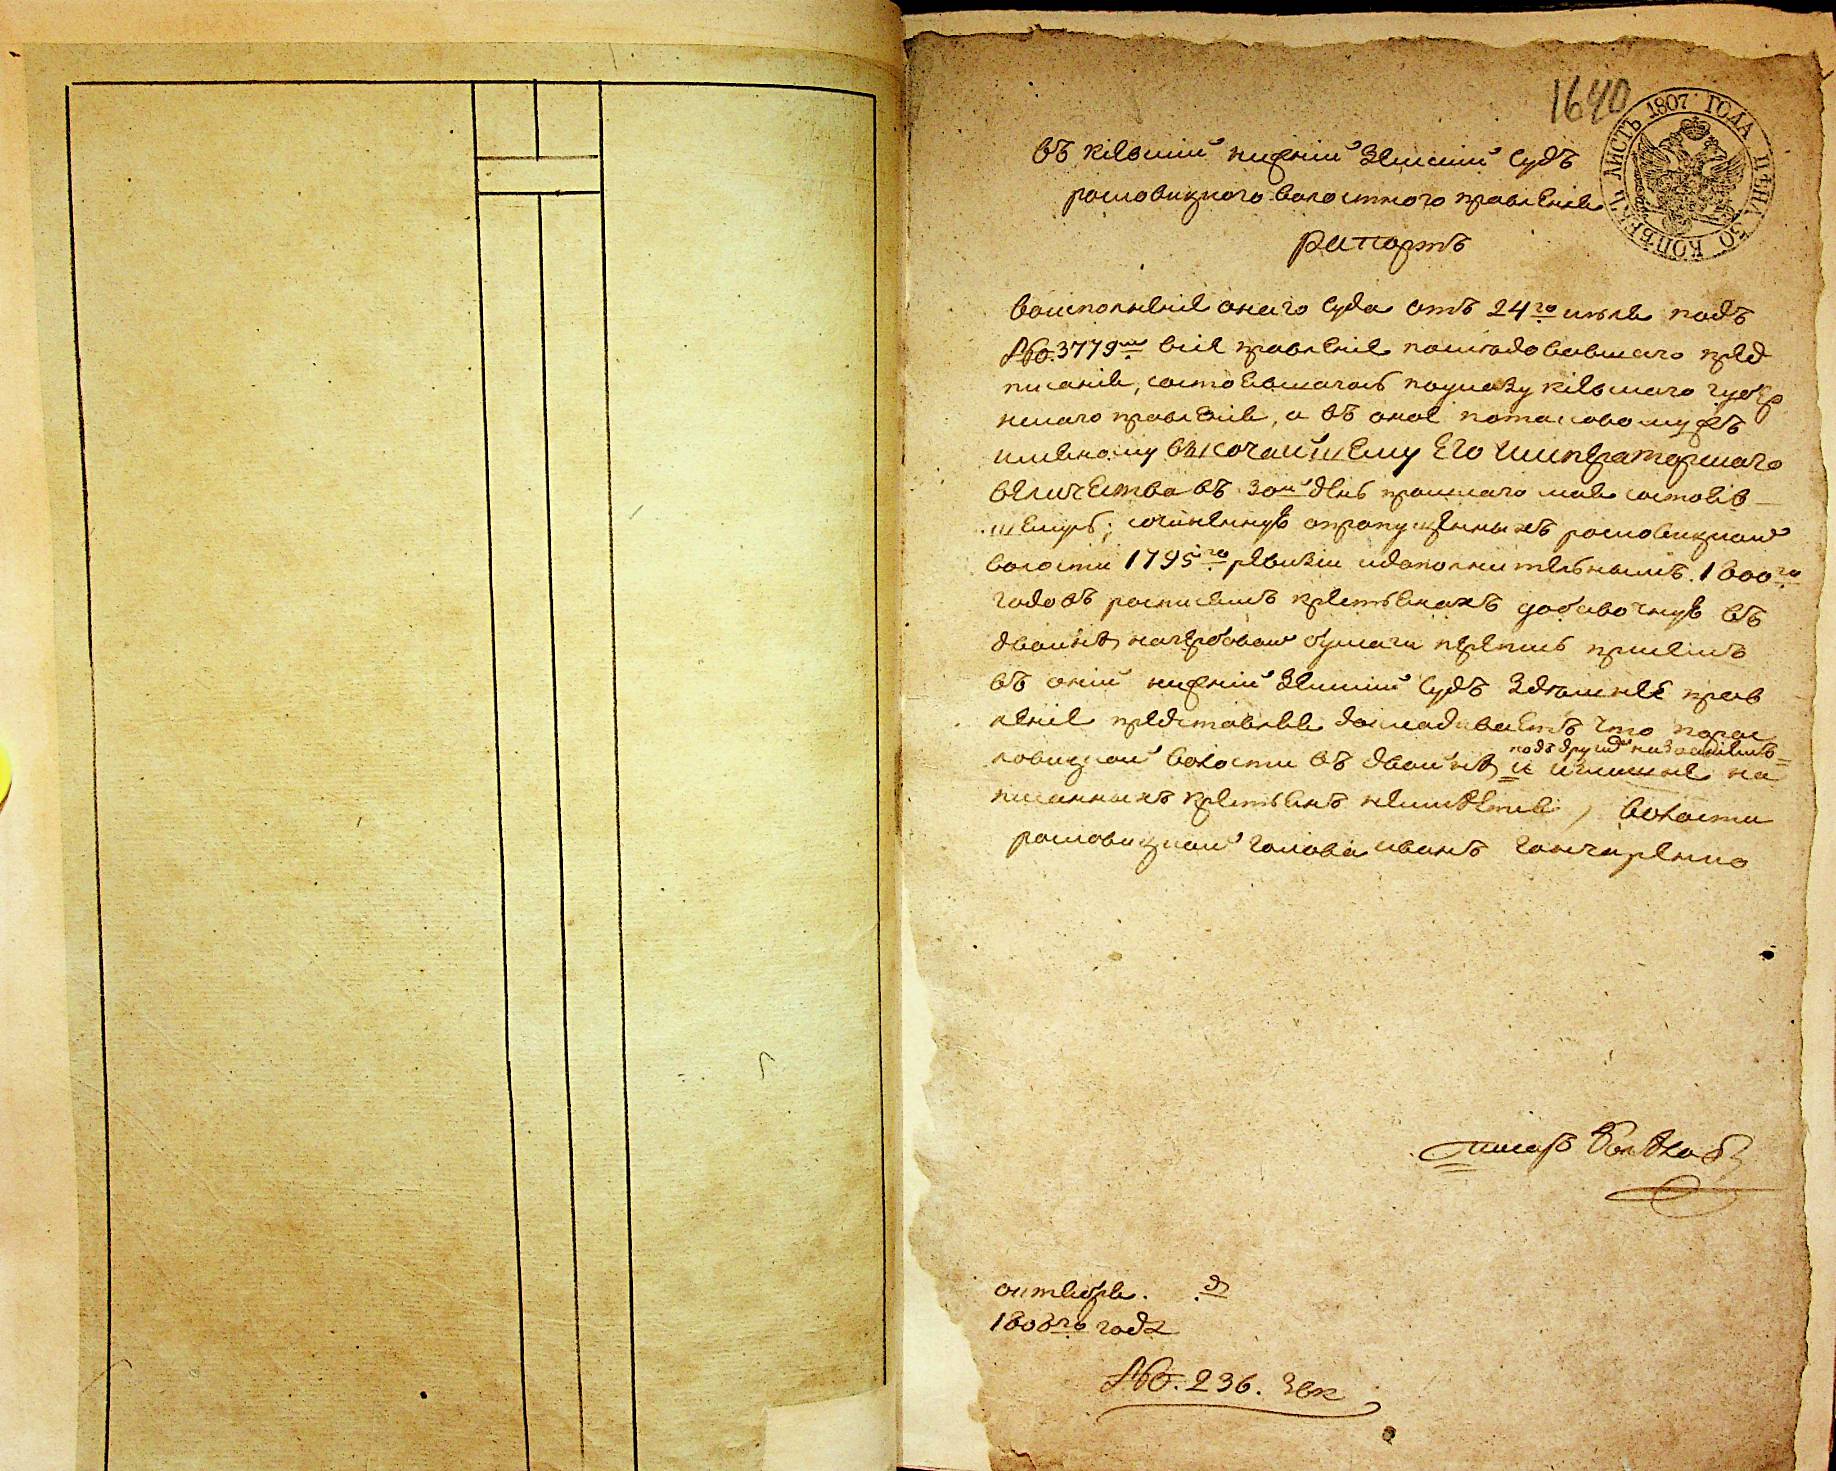 1640
ЛИСТЪ 1807 ГОДА ЦѢНА 30 КОПѢЕКЪ
Въ кіевскій нижній Земскій Судъ
рословицкого волостного правленія
рапортъ
воисполненіе онаго Суда отъ 24го июля подъ
№о. 3779м сіе правленіе пошледовавшаго пред
писанія, состоевшагось поуказу кіевскаго губер
нскаго правленія, а въ оное потаковомужъ
имянному высочайшему Его Императорскаго
величества въ 30й день прошлаго мая состояв
шемусь; сочиненную опропущенныхъ рословицкой
волости 1795го ревизіи идополнительнымъ 1800го
годовъ росписямъ крестьянахъ добавочную въ
двойнѣ, нагербовой бумаги перепись присемъ
въ оній нижній Земскій Судъ здешнее прав
леніе представляя докладиваетъ что порос
ловицкой волости въ двойнѣ, и излишне на
подъ другимъ названіемъ
писанныхъ крестьянъ неимѣется, волости
рословицкой голова иванъ гончаренко
писарь
октября. д
1808го года
№о. 236. Зек